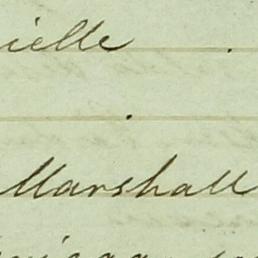 ielle .
Marshall